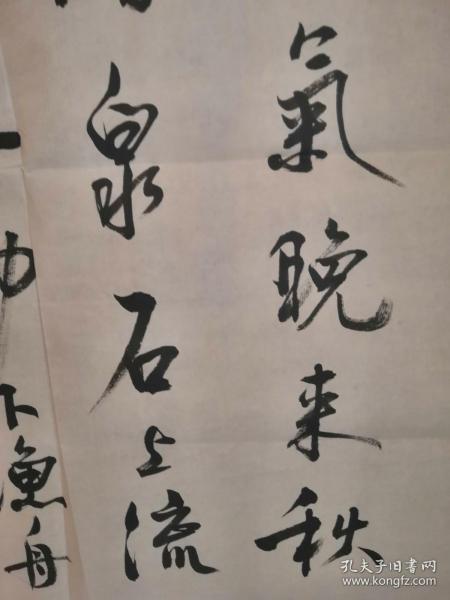 氣晚来秋
泉石上流
下魚舟
孔夫子旧书网
www.kongfz.com